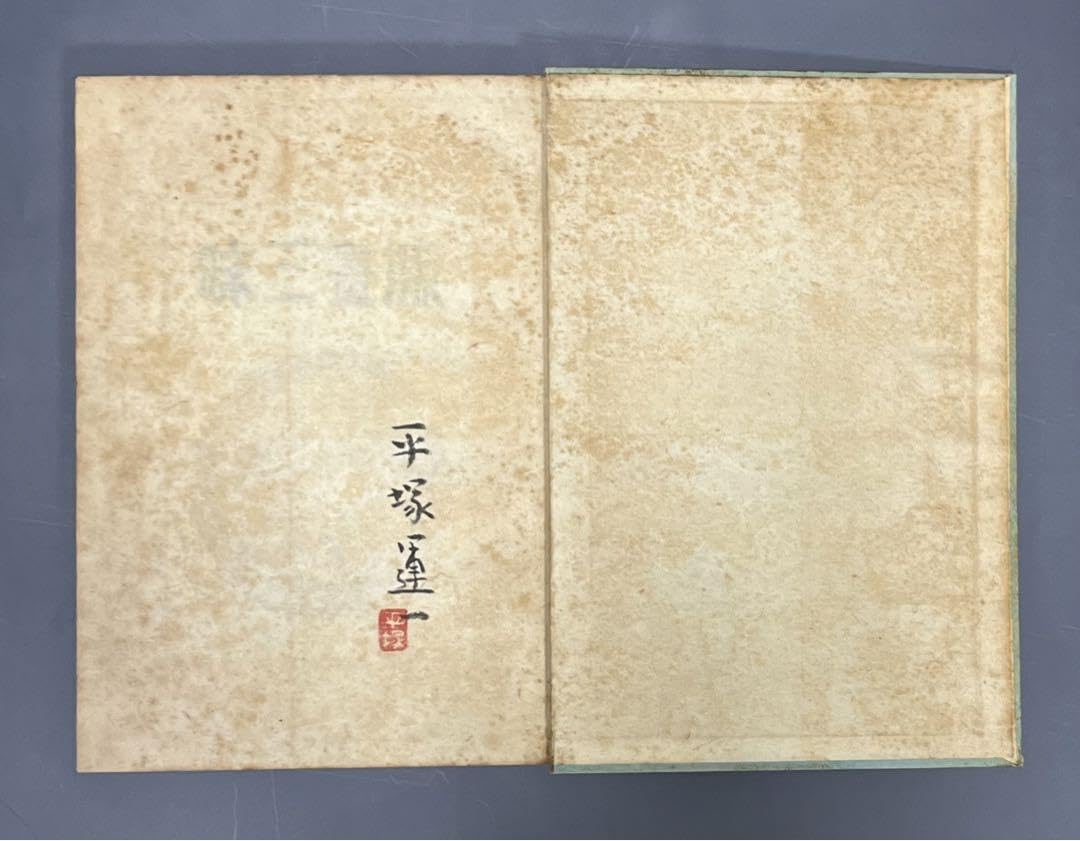 平塚運一
平塚